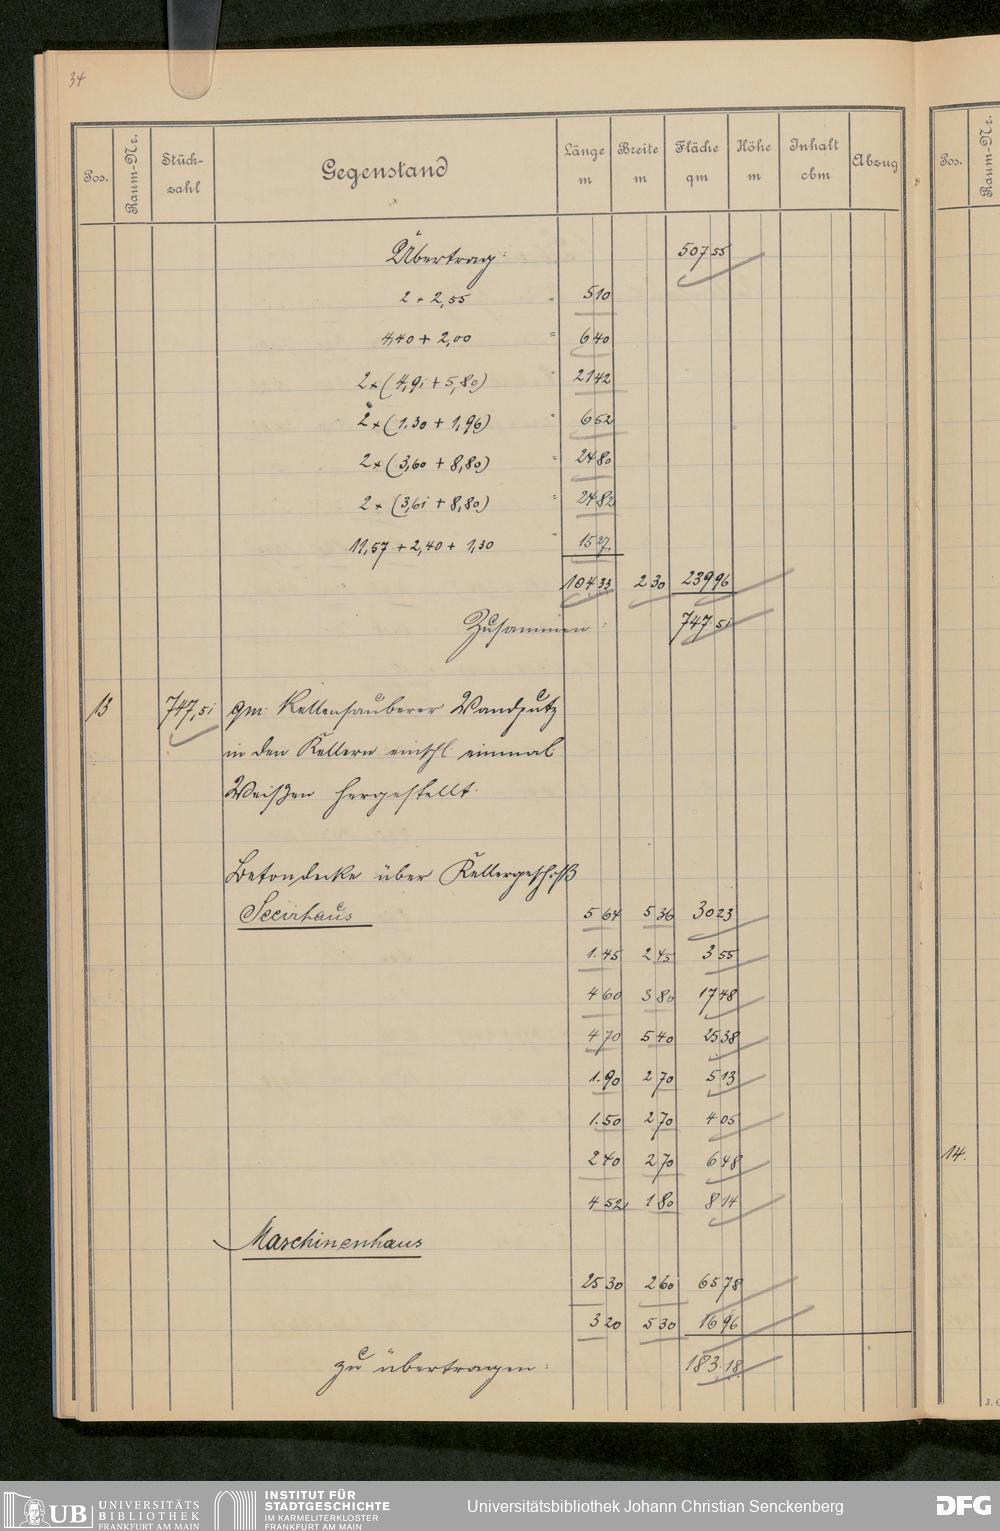 34
Pos. Raum-Nr. Stück-zahl Gegenstand Länge m Breite m Fläche qm Höhe m Inhalt cbm Abzug Pos. Raum-Nr.
Übertrag: 507 55
2 × 2,55 = 5 10
4,40 + 2,00 = 6 40
2 × (4,91 + 5,80) " 21 42
2 × (1.30 + 1,96) " 6 52
2 × (3,60 + 8,80) = 24 80
2 × (3,61 + 8,80) = 24 82
11,57 + 2,40 + 1,30 " 15 27
104 33 2 30 239 96
Zusammen: 747.51
13 747,51 qm Kellensauberer Wandputz
in den Kellern einschl. einmal
Weißen hergestellt.
Betondecke über Kellergeschoß
Secirhaus 5 64 5 36 30 23
1.45 2 45 3 55
4 60 3 80 17 48
4 70 5 40 25 38
1.90 2 70 5 13
1.50 2 70 4 05
2 40 2 70 6 48
14.
4 52 1 80 8 14
Maschinenhaus
25 30 2 60 65 78
3 20 5 30 16 96
zu übertragen: 183.18
J. C
UB UNIVERSITÄTS
BIBLIOTHEK
FRANKFURT AM MAIN
INSTITUT FÜR
STADTGESCHICHTE
IM KARMELITERKLOSTER
FRANKFURT AM MAIN
Universitätsbibliothek Johann Christian Senckenberg
DFG